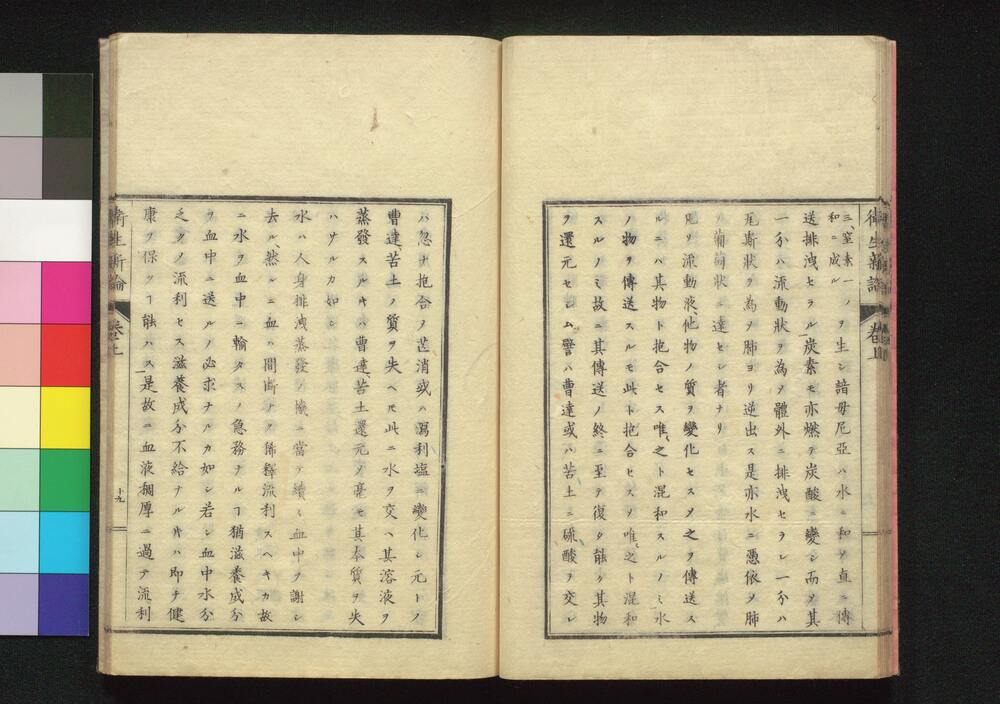 衛生新論 卷上
三、窒素一ノヲ生シ諳母尼亞ハ水ニ和ソ直ニ傳
和ニ成ル
送排洩セラル炭素モ亦燃テ炭酸ニ變シ而ソ其
一分ハ流動狀ヲ為ソ體外ニ排洩セラレ一分ハ
瓦斯狀ヲ為ソ肺ヨリ逆出ス是亦水ニ憑依ソ肺
葡萄狀ニ達セシ者ナリ
凡ソ流動液、他物ノ質ヲ變化セスソ之ヲ傳送ス
ルニハ其物ト抱合セス唯、之ト混和スルノミ水
ノ物ヲ傳送スルモ此ト抱合セスソ唯、之ト混和
スルノミ故ニ其傳送ノ終ニ至テ復タ能ク其物
ヲ還元セシム譬ハ曹達或ハ苦土ニ硫酸ヲ交レ
ハ忽チ抱合ソ芒消或ハ瀉利塩ニ變化シ元トノ
曹達、苦土ノ質ヲ失ヘ𪜈此ニ水ヲ交ヘ其溶液ヲ
蒸發スルキハ曹達、苦土還元ソ毫モ其本質ヲ失
ハサルカ如シ
水ハ人身排洩蒸發ノ機ニ當テ續々血中ヲ謝シ
去ル、然ルニ血ハ間斷ナク稀釋流利スヘキカ故
ニ水ヲ血中ニ輸タスノ急務ナルヿ猶滋養成分
ヲ血中ニ送ルノ必求ナルカ如シ若シ血中水分
乏クソ流利セス滋養成分不給ナルキハ即チ健
康ヲ保ツヿ能ハス是故ニ血液稠厚ニ過テ流利
衛生新論 卷之上 十九